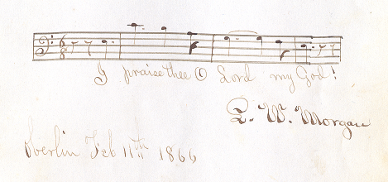 I praise thee O Lord my God!
L. W. Morgan
Oberlin Feb 11th 1866